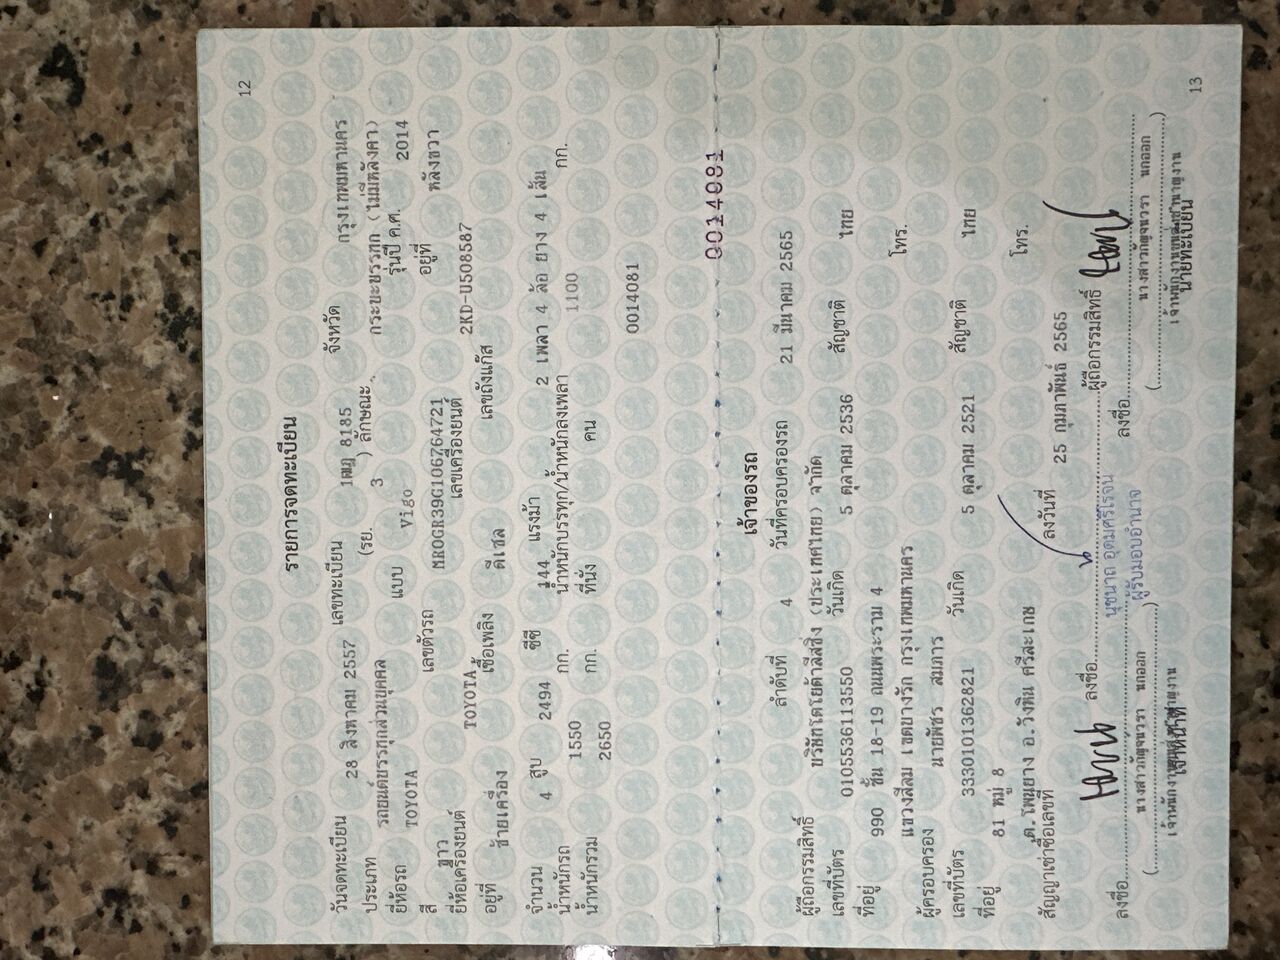 12
รายการจดทะเบียน
วันจดทะเบียน 28 สิงหาคม 2557 เลขทะเบียน 1ฒฎ 8185 จังหวัด กรุงเทพมหานคร
ประเภท รถยนต์บรรทุกส่วนบุคคล (รย. 3 ) ลักษณะ กระบะบรรทุก (ไม่มีหลังคา)
ยี่ห้อรถ TOYOTA แบบ Vigo รุ่นปี ค.ศ. 2014
สี ขาว เลขตัวรถ MR0GR39G106764721 อยู่ที่ หลังขวา
ยี่ห้อเครื่องยนต์ TOYOTA เลขเครื่องยนต์ 2KD-U508587
อยู่ที่ ซ้ายเครื่อง เชื้อเพลิง ดีเซล เลขถังแก๊ส
จำนวน 4 สูบ 2494 ซีซี 144 แรงม้า 2 เพลา 4 ล้อ ยาง 4 เส้น
น้ำหนักรถ 1550 กก. น้ำหนักบรรทุก/น้ำหนักลงเพลา 1100 กก.
น้ำหนักรวม 2650 กก. ที่นั่ง คน
0014081
0014081
เจ้าของรถ
ลำดับที่ 4 วันที่ครอบครองรถ 21 มีนาคม 2565
ผู้ถือกรรมสิทธิ์ บริษัทโตโยต้าลีสซิ่ง (ประเทศไทย) จำกัด
เลขที่บัตร 0105536113550 วันเกิด 5 ตุลาคม 2536 สัญชาติ ไทย
ที่อยู่ 990 ชั้น 18-19 ถนนพระราม 4 โทร.
แขวงสีลม เขตบางรัก กรุงเทพมหานคร
ผู้ครอบครอง นายพัชร สมภาร
เลขที่บัตร 3330101362821 วันเกิด 5 ตุลาคม 2521 สัญชาติ ไทย
ที่อยู่ 81 หมู่ 8 โทร.
ต.โพนยาง อ.วังหิน ศรีสะเกษ
สัญญาเช่าซื้อเลขที่ ลงวันที่ 25 กุมภาพันธ์ 2565
ลงชื่อ ผู้ถือกรรมสิทธิ์
นุชนาถ อุดมศรีโรจน์
ผู้รับมอบอำนาจ
ลงชื่อ ลงชื่อ
( นางสาวกัญจนวรา นกออก ) ( นางสาวกัญจนวรา นกออก )
เจ้าหน้าที่ นายทะเบียน
13